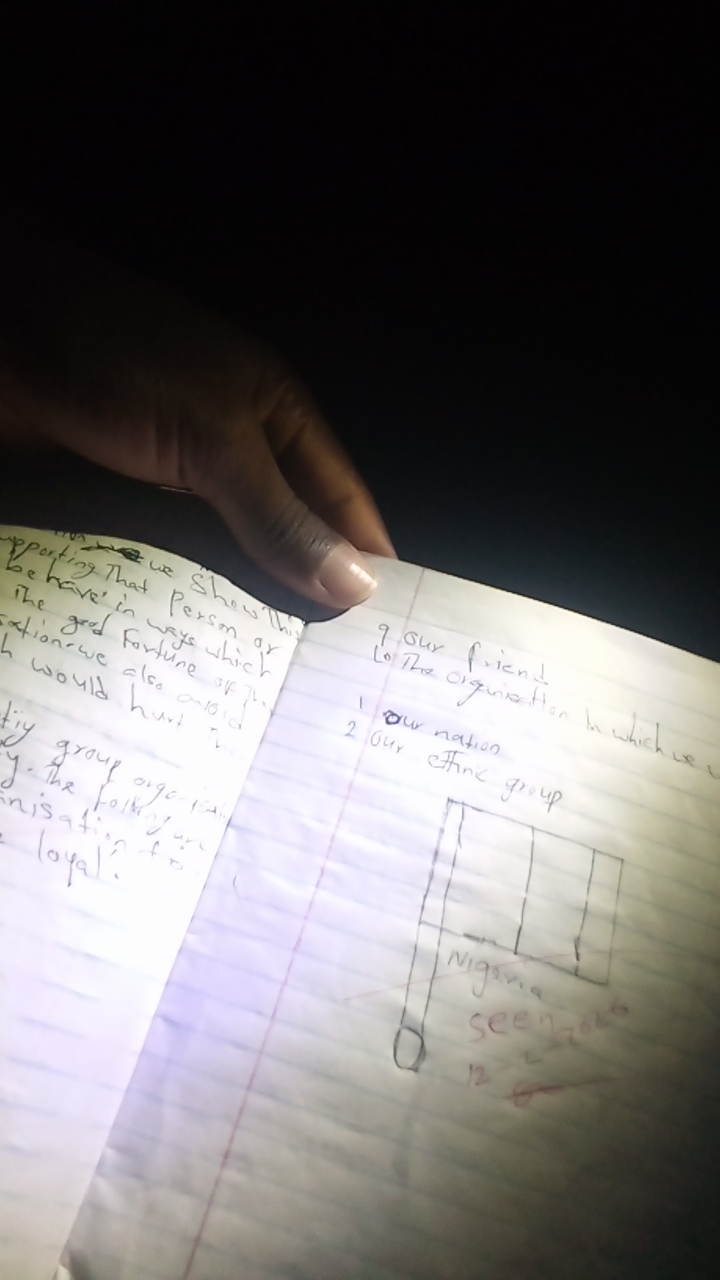 we show this
supporting that person or
behave in ways which
the good fortune of the
sation. we also avoid
h would hurt
group organisati
y. The follwing are
anisation to
e loyal.
9 our friend
10 The organisation in which we w
1 our nation
2 our ethnic group
Nigeria
seen
12 2 2026